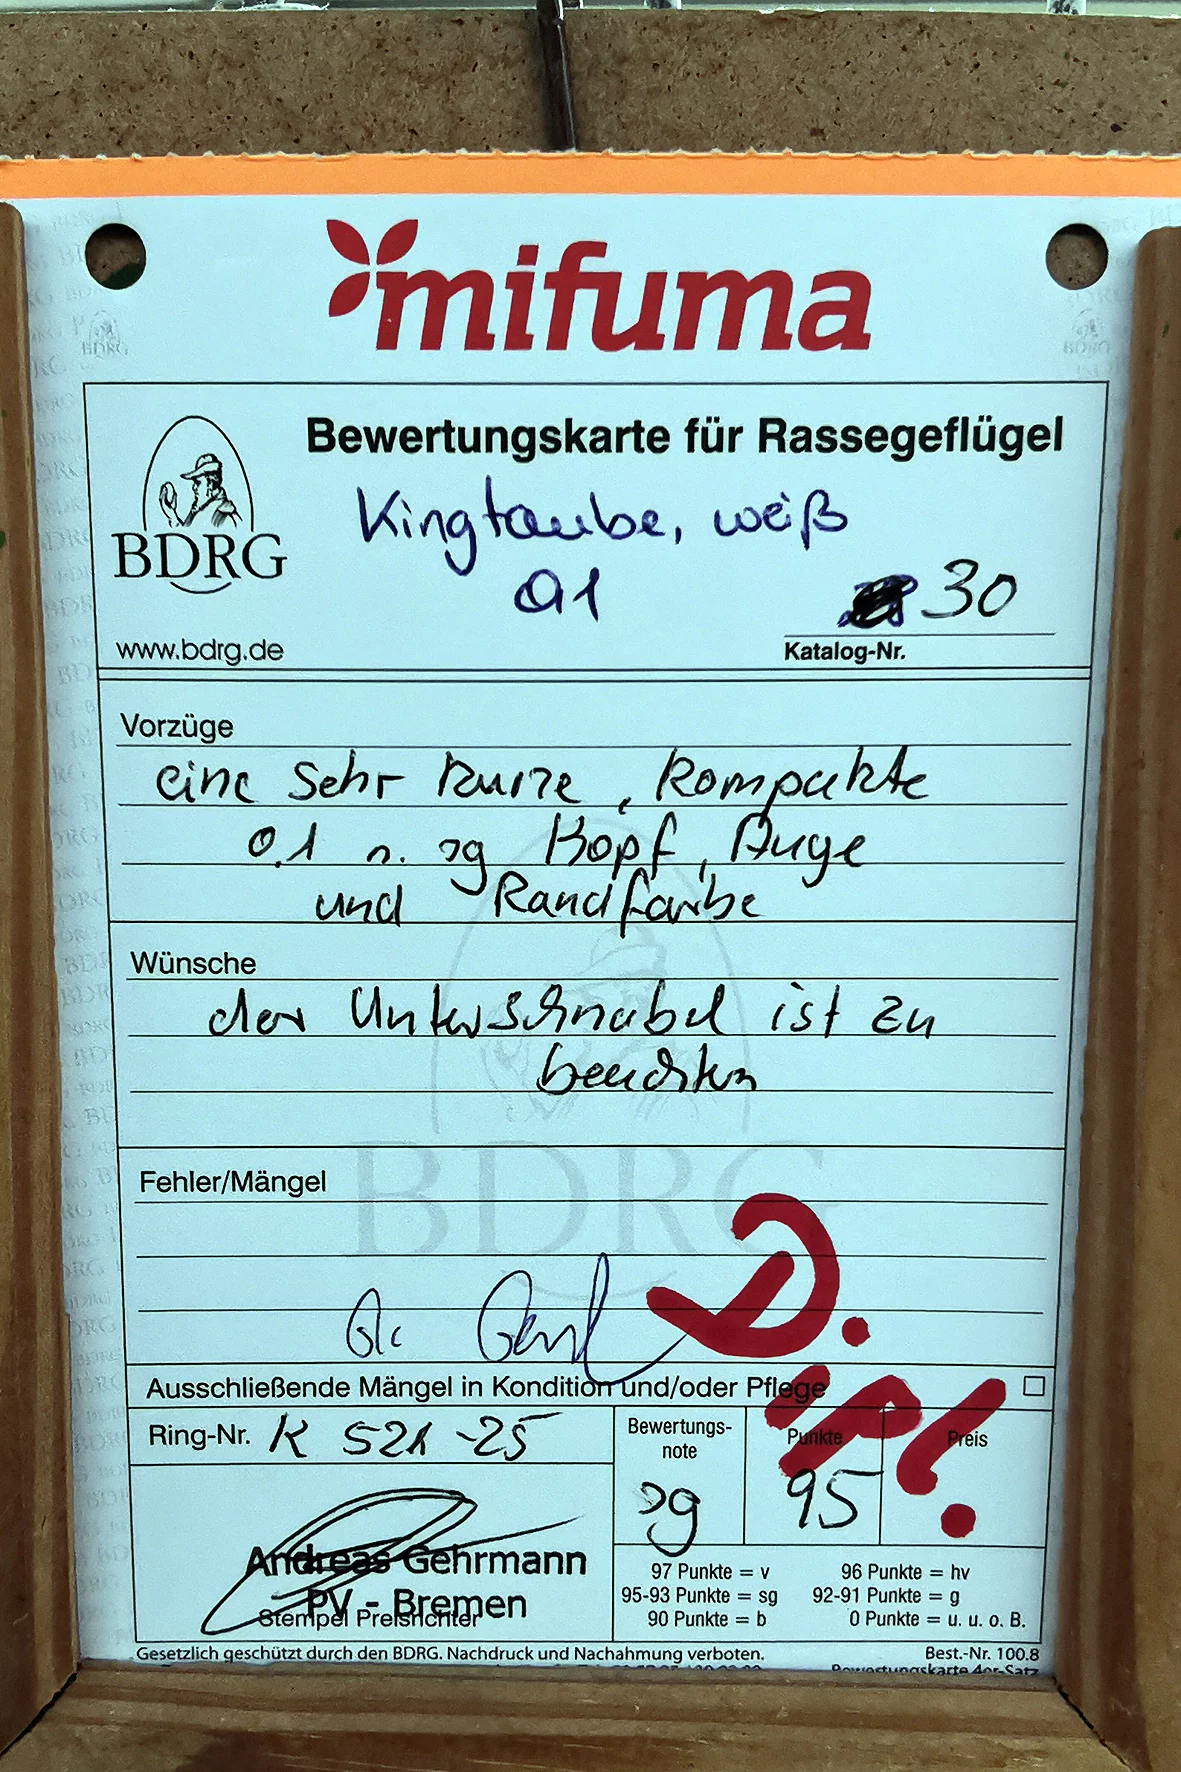 mifuma
Bewertungskarte für Rassegeflügel
BDRG
Kingtaube, weiß
0,1
30
www.bdrg.de
Katalog-Nr.
Vorzüge
eine sehr kurze, kompakte
0,1 m. sg Kopf, Auge
und Randfarbe
Wünsche
der Unterschnabel ist zu
beachten
Fehler/Mängel
Ausschließende Mängel in Kondition und/oder Pflege
Ring-Nr. K 521 -25
Bewertungs-
note
Punkte
Preis
sg
95
Andreas Gehrmann
PV - Bremen
Stempel Preisrichter
97 Punkte = v
96 Punkte = hv
95-93 Punkte = sg
92-91 Punkte = g
90 Punkte = b
0 Punkte = u. u. o. B.
Gesetzlich geschützt durch den BDRG. Nachdruck und Nachahmung verboten.
Best.-Nr. 100.8
Bewertungskarte 4er-Satz